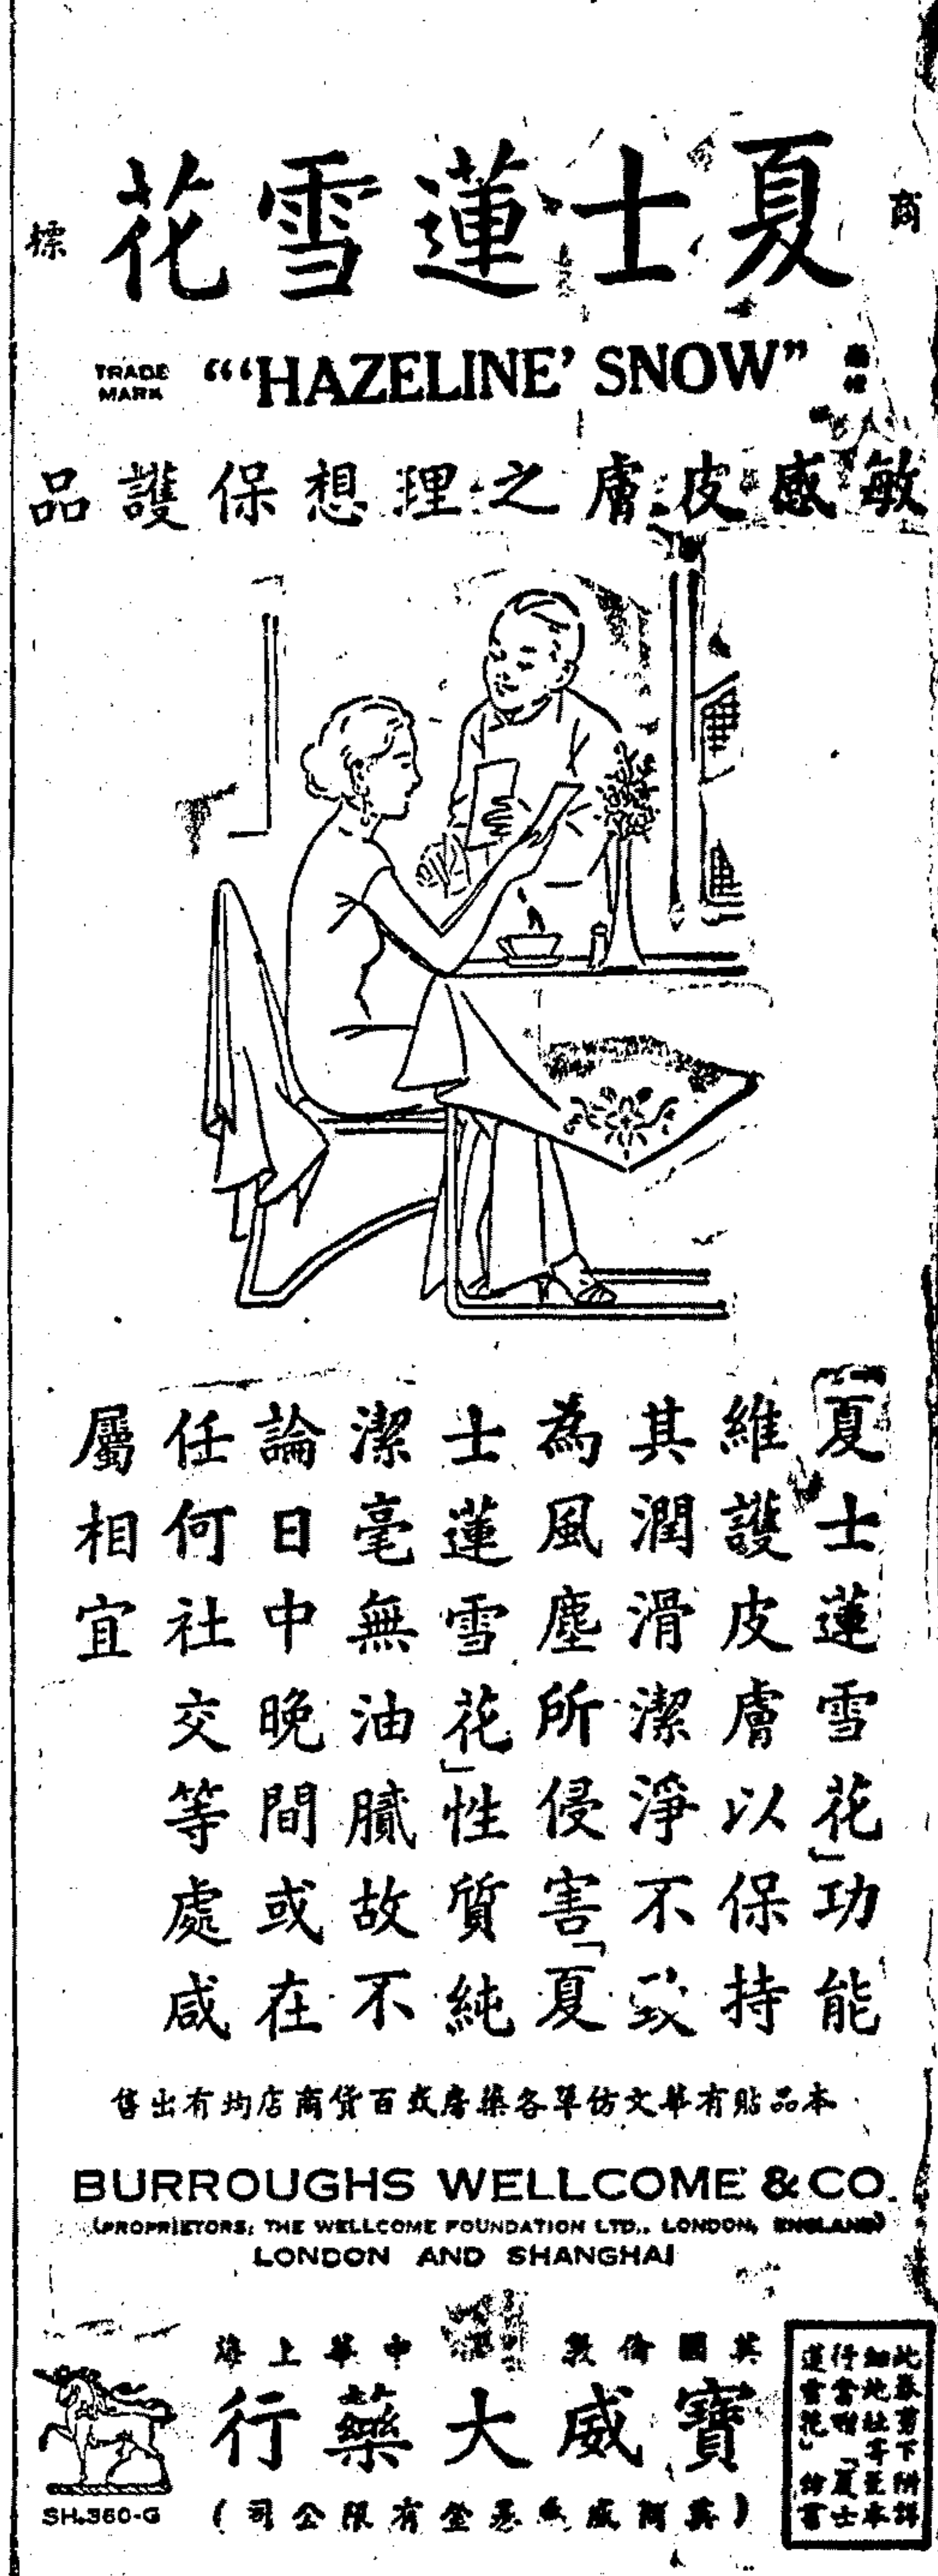 商標
夏士蓮雪花
TRADE MARK
"'HAZELINE' SNOW"
敏感皮膚之理想保護品
「夏士蓮雪花」功能
維護皮膚以保持
其潤滑潔淨不致
為風塵所侵害「夏
士蓮雪花」性質純
潔毫無油膩故不
論日中晚間或在
任何社交等處咸
屬相宜
本品貼有華文仿單各藥房或百貨商店均有出售
BURROUGHS WELLCOME & CO.
(PROPRIETORS: THE WELLCOME FOUNDATION LTD., LONDON, ENGLAND)
LONDON AND SHANGHAI
英國倫敦 中華上海
寶威大藥行
有限公司)
SH.360-G
此券剪下附詳
細地址寄至本
行當贈「夏士
蓮雪花」